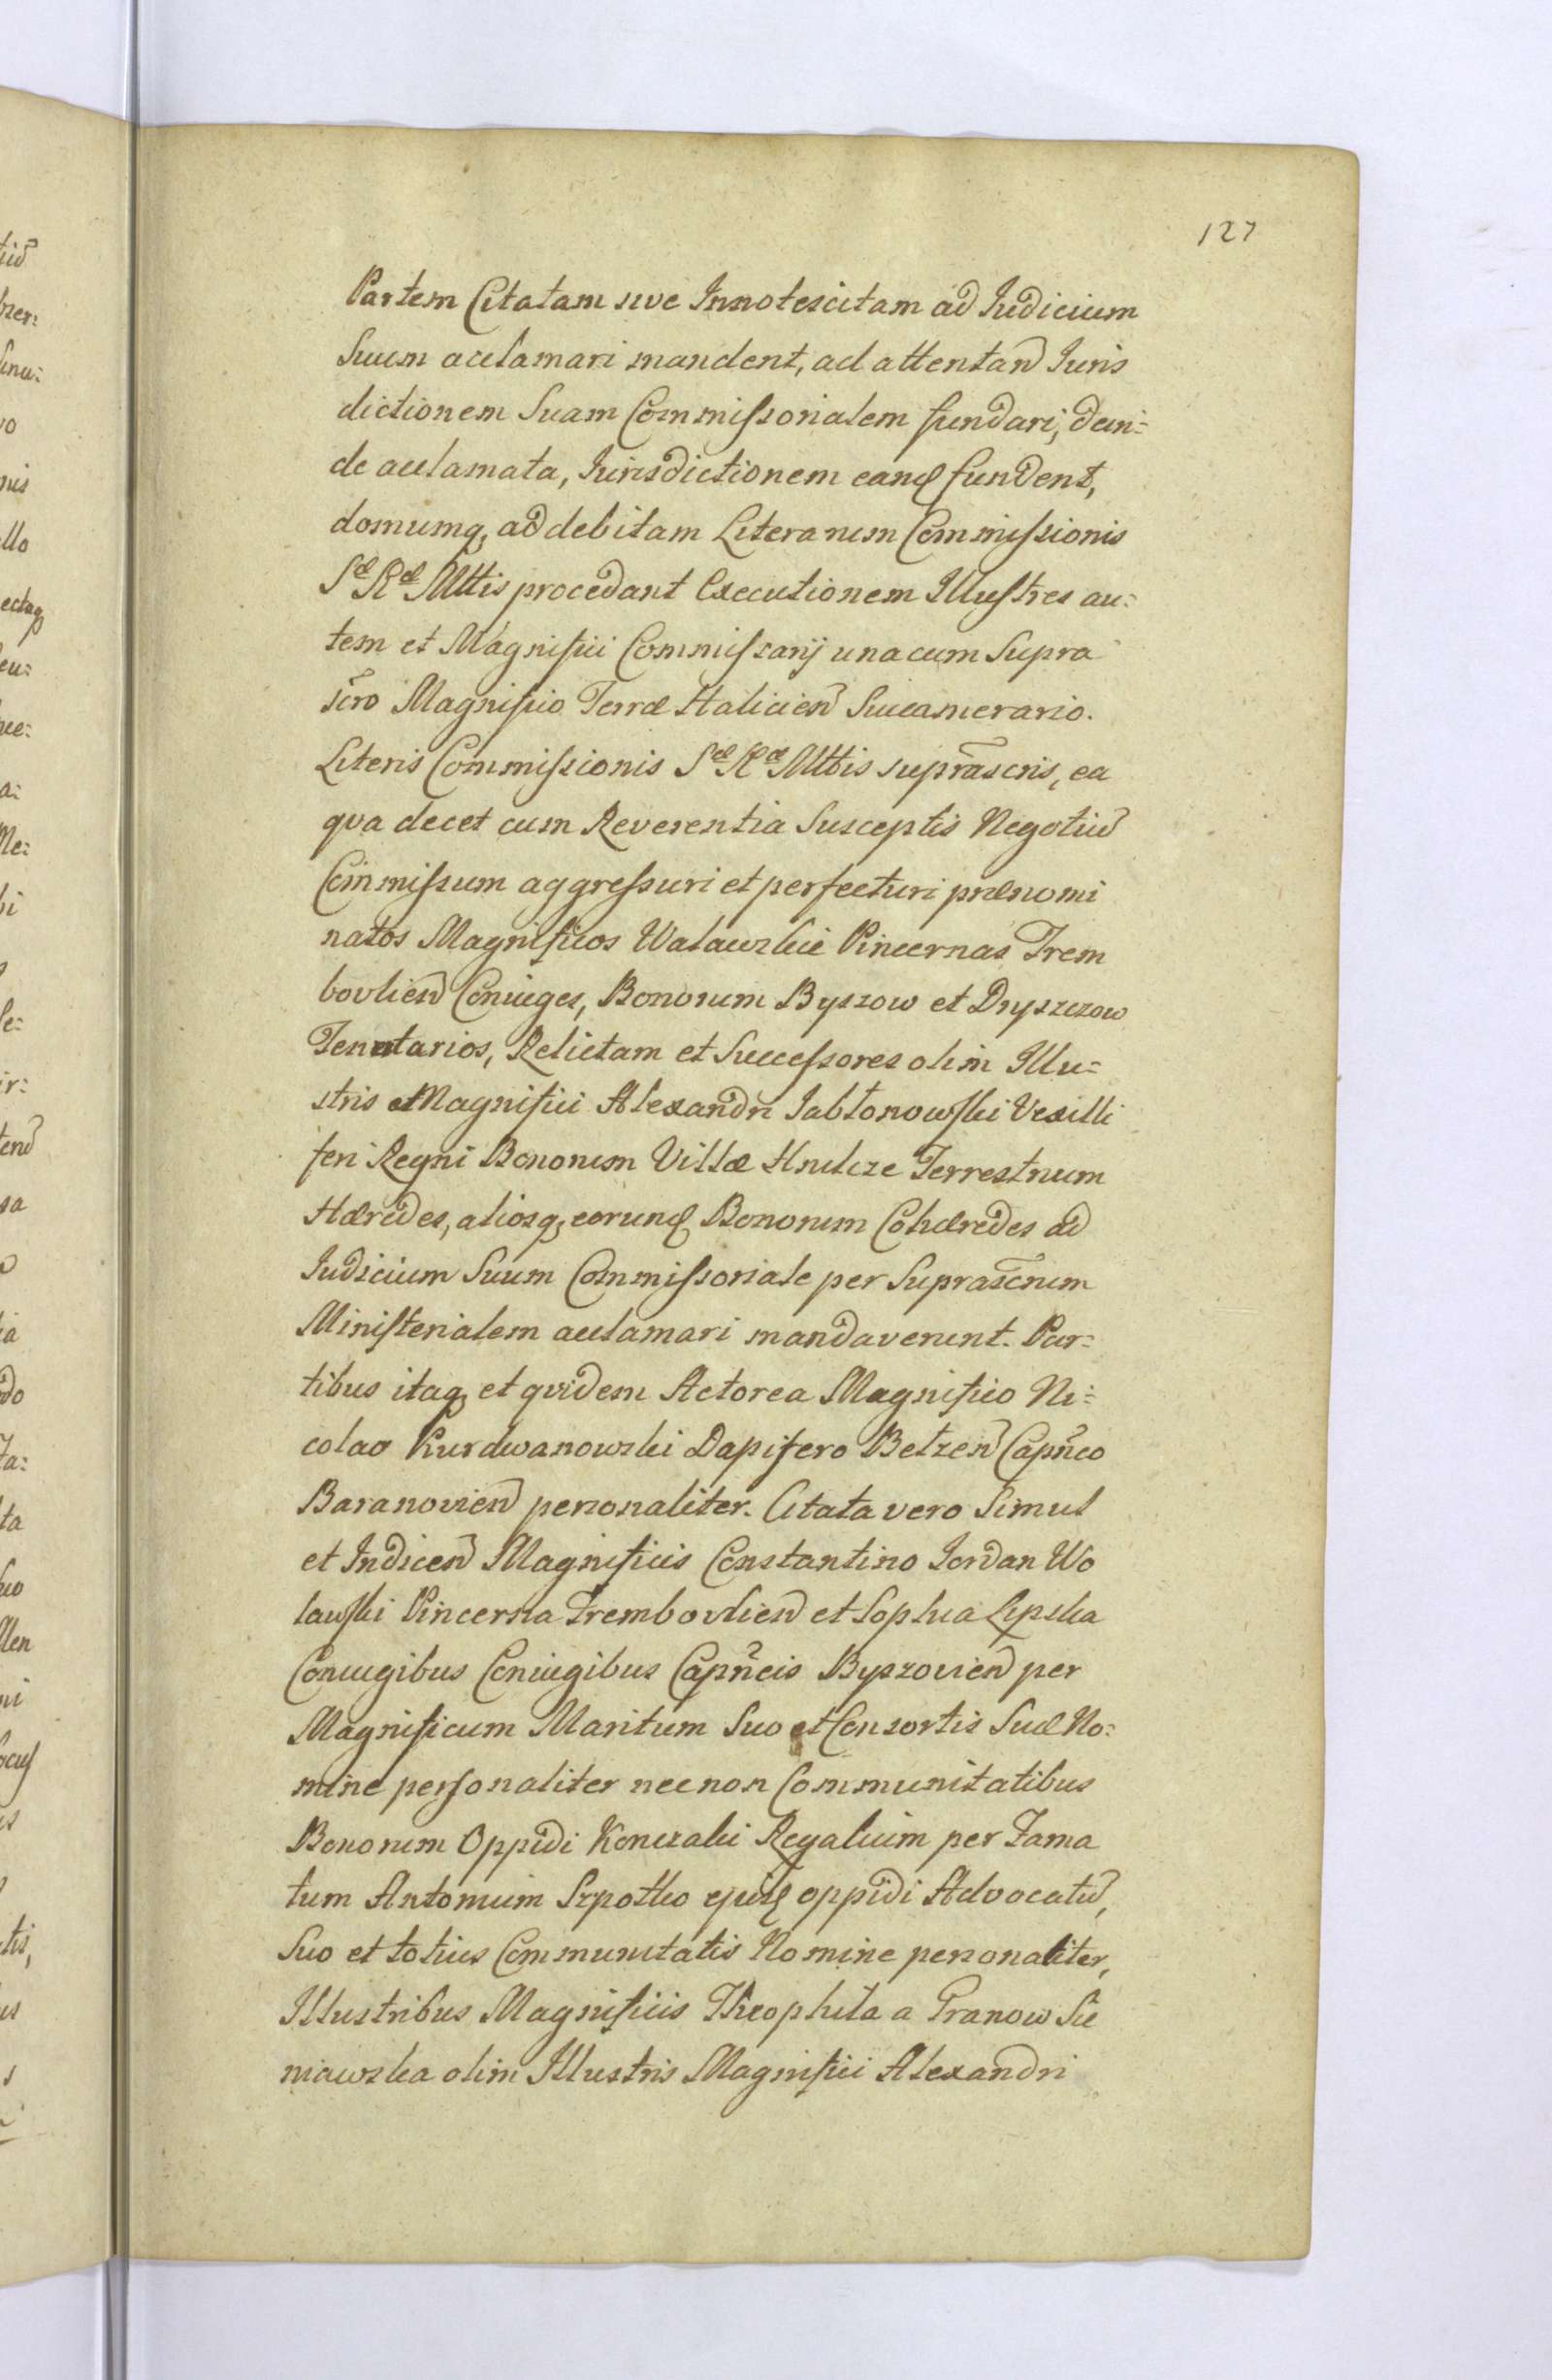 127
Partem Citatam sive Innotescitam ad Iudicium
Suum acclamari mandent, ad attentand Iuris
dictionem Suam Commissorialem fundari, dein=
de acclamata, Iurisdictionem eandq fundent,
domumq, ad debitam Literarum Commissionis
Sæ Ræ Mttis procedant Executionem Illustres au=
tem et Magnifici Commissarij una cum Supra
scro Magnifico Terræ Haliciens Succamerario.
Literis Commissionis Sæ Ræ Mttis suprascris, ea
qva decet cum Reverentia Susceptis Negotiu
Commissum aggressuri et perfecturi prænomi
natos Magnificos Walawskie Pincernas Trem
bovliens Coniuges, Bonorum Byszow et Dryszczow
Tenutarios, Relictam et Successores olim Illu=
stris et Magnifici Alexandri Jabłonowski Vexilli
feri Regni Bonorum Villæ Hnilcze Terrestrium
Hæredes, aliosq, eorundq Bonorum Cohæredes ad
Iudicium Suum Commissoriale per Suprascrum
Ministerialem acclamari mandaverunt. Par=
tibus itaq, et qvidem Actorea Magnifico Ni=
colao Kurdwanowski Dapifero Bełzen Capneo
Baranovien personaliter. Citata vero Simul
et Indicen Magnificis Constantino Jordan Wo
lawski Pincerna Trembovlien et Sophia Lipska
Coniugibus Coniugibus Capneis Byszovien per
Magnificum Maritum Suo et Consortis Suæ No=
mine personaliter necnon Communitatibus
Bonorum Oppidi Konczaki Regalium per Fama
tum Antonium Szpotko ejusd oppidi Advocatu,
Suo et totius Communitatis Nomine personaliter,
Illustribus Magnificis Theophila a Granow Sie
niawska olim Illustris Magnifici Alexandri